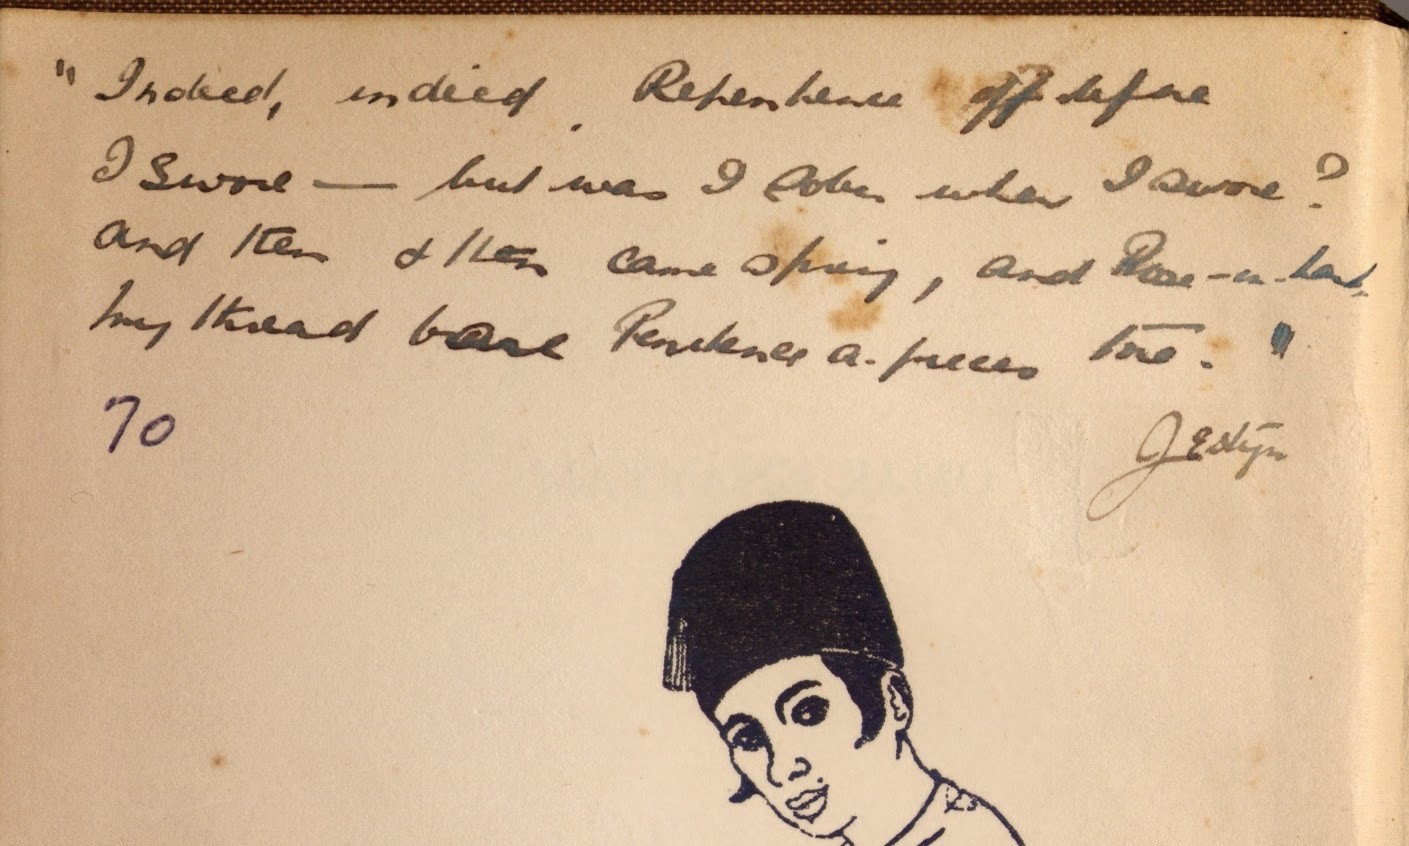 " Indeed, indeed, Repentence oft before
I swore — but was I sober when I swore?
And then & then came spring, and Rose-in-hand,
my thread bare Penitence a-pieces tore. "
70
JEstyn